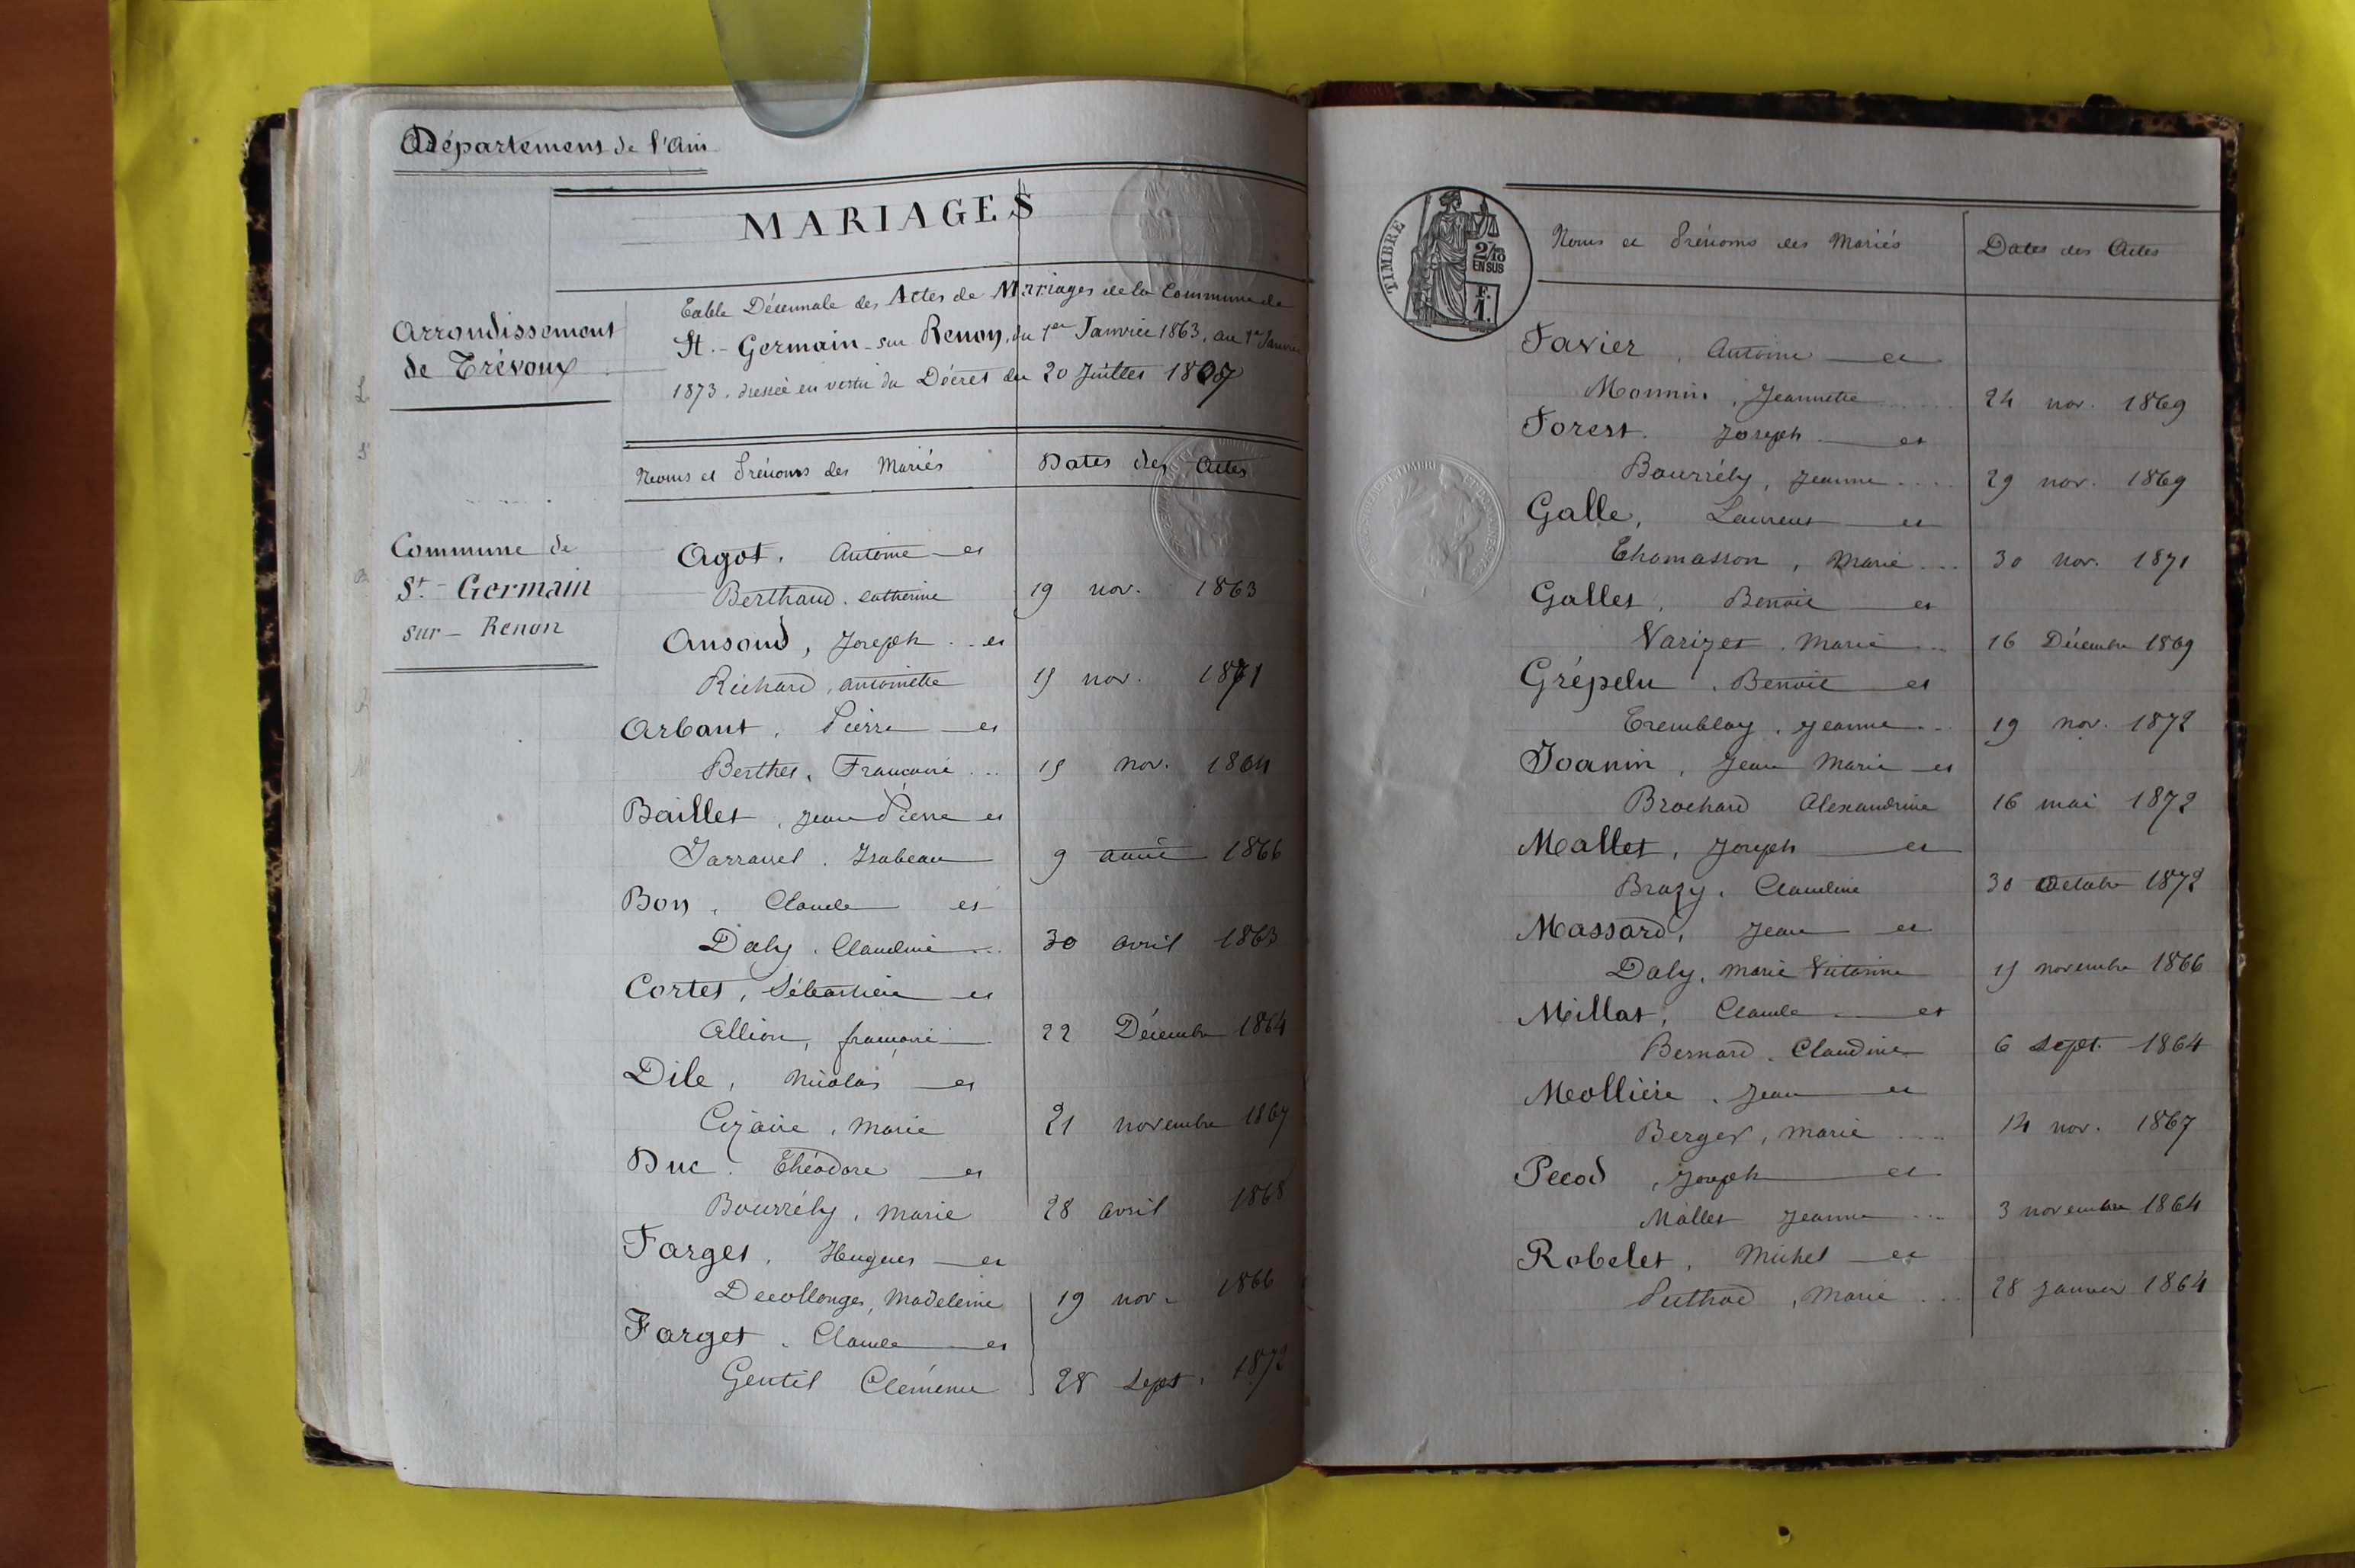 Département de l'Ain
MARIAGES
Arrondissement
de Trévoux
Table Décennale des Actes de Mariages de la Commune de
St.- Germain - sur Renon, du 1er Janvier 1863, au 1er Janvier
1873, dressée en vertu du Décret du 20 Juillet 1807
Noms et Prénoms des Mariés Dates des Actes
Commune de
St.- Germain
sur - Renon
Agot, Antoine et
Berthaud, Catherine 19 nov. 1863
Ansoud, Joseph et
Richard, antoinette 15 nov. 1871
Arbant, Pierre et
Berthet, Françoise 15 nov. 1864
Baillet, Jean Pierre et
Jarravel, Isabeau 9 août 1866
Bon, Claude et
Daly, Claudine 30 avril 1863
Cortet, Sébastien et
Allion, françoise 22 Décembre 1864
Dile, Nicolas et
Cézaire, Marie 21 novembre 1867
Duc, Théodore et
Bourrély, Marie 28 avril 1868
Farget, Hugues et
Decollonges, Madeleine 19 nov. 1866
Farget, Claude et
Gentil Clémence 28 Sept. 1872
TIMBRE
2/10
EN SUS
F.
1.
Noms et Prénoms des Mariés Dates des Actes
Favier, Antoine et
Monnin, Jeannette 24 nov. 1869
Forest, Joseph et
Bourrély, Jeanne 29 nov. 1869
Galle, Laurent et
Thomasson, Marie 30 nov. 1871
Gallet, Benoit et
Varizet, Marie 16 Décembre 1869
Grépelu, Benoit et
Tremblay, Jeanne 19 nov. 1872
Joanin, Jean Marie et
Brochard Alexandrine 16 mai 1872
Mallet, Joseph et
Brazy, Claudine 30 Octobre 1872
Massard, Jean et
Daly, Marie Victorine 15 novembre 1866
Millat, Claude et
Bernard, Claudine 6 Sept. 1864
Mollière, Jean et
Berger, Marie 14 nov. 1867
Pecod, Joseph et
Mallet Jeanne 3 novembre 1864
Robelet, Michel et
Puthod, Marie 28 Janvier 1864